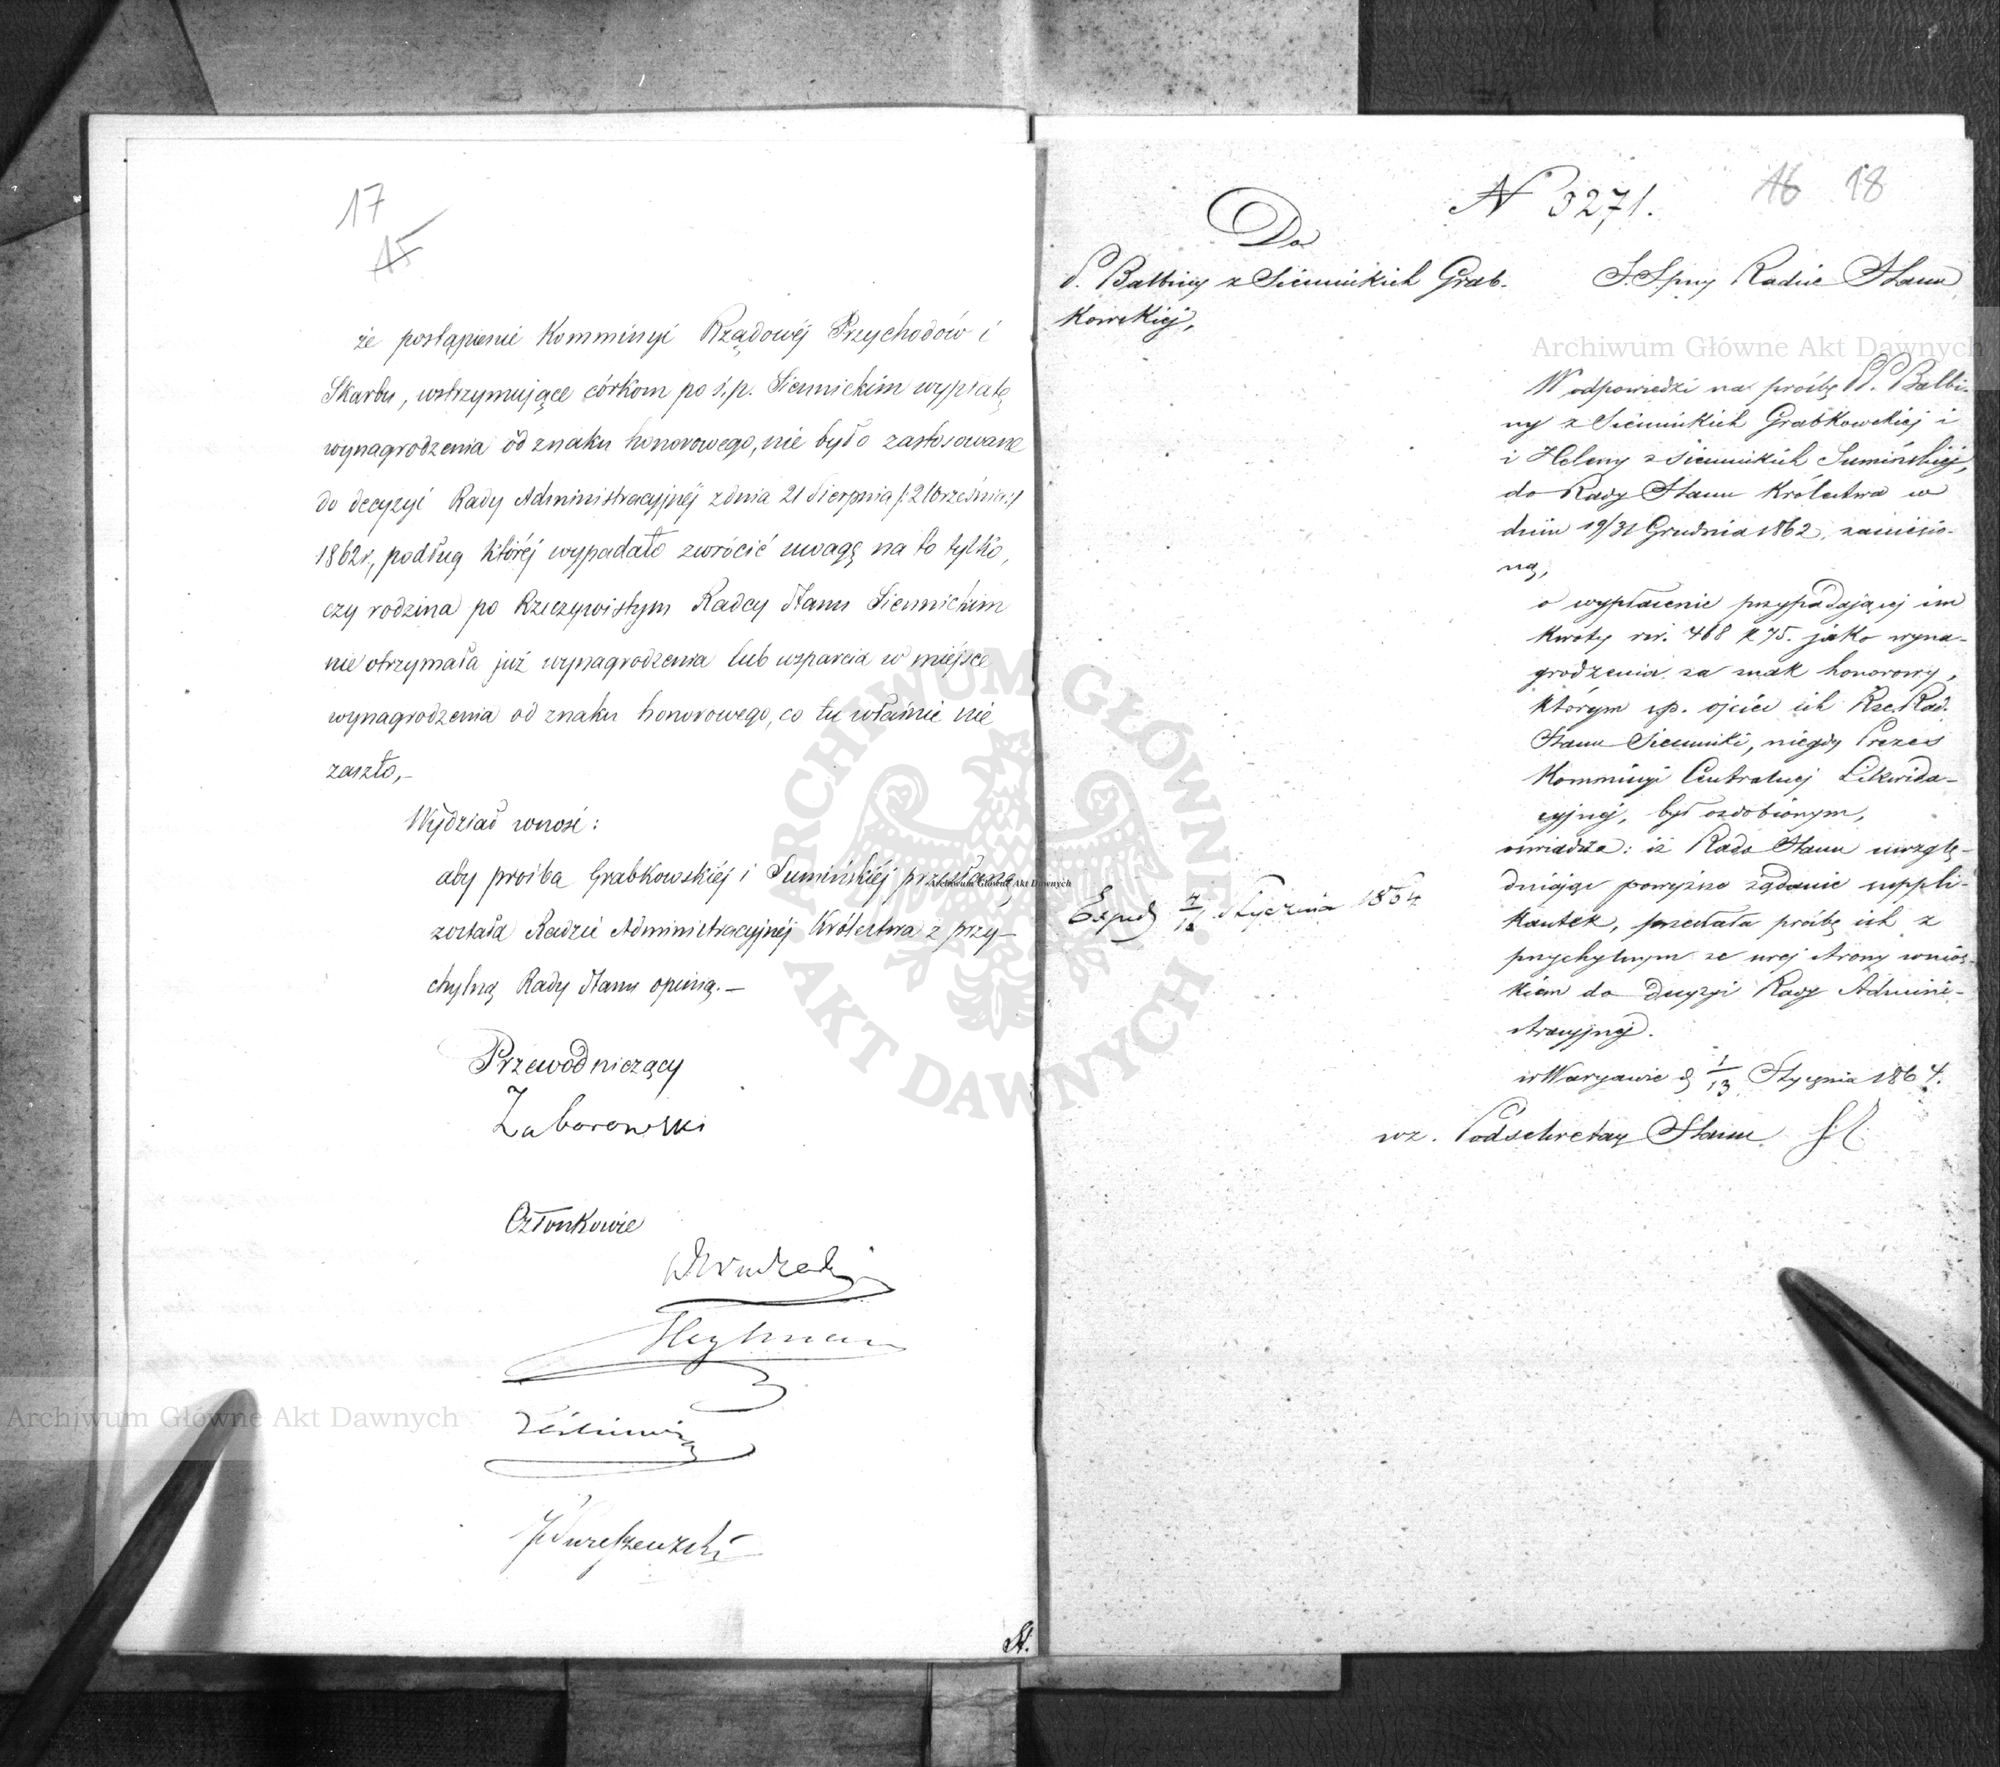 17
15
że postąpienie Kommissyi Rządowéj Przychodów i
Skarbu, wstrzymujące córkom po ś. p. Siennickim wypłatę
wynagrodzenia od znaku honorowego, nie było zastosowane
do decyzyi Rady Administracyjnéj z dnia 21 Sierpnia /:2 Września:/
1862 r., podług któréj wypadało zwrócić uwagę na to tylko,
czy rodzina po Rzeczywistym Radcy Stanu Siennickim
nie otrzymała już wynagrodzenia lub wsparcia w miejsce
wynagrodzenia od znaku honorowego, co tu właśnie nie
zaszło,—
Wydział wnosi:
aby prośba Grabkowskiéj i Sumińskiéj przesłaną
została Radzie Administracyjnéj Królestwa z przy-
chylną Rady Stanu opinią.—
Przewodniczący
Zaborowski
Członkowie
Heylman
N 3271.
16 18
Do
P. Balbiny z Siennickich Grab-
kowskiej,
Radzie Stanu
W odpowiedzi na prośbę P. Balbi-
ny z Siennickich Grabkowskiej i
i Heleny z Siennickich Sumińskiej,
do Rady Stanu Królestwa w
dniu 19/31 Grudnia 1862, zaniesio-
ną,
o wypłacenie przypadającej im
kwoty rsr. 468 k 75. jako wyna-
grodzenia za znak honorowy,
którym ś.p. ojciec ich Rze. Rad.
Stanu Siennicki, niegdy Prezes
Kommissyi Centralnej Likwida-
cyjnej, był ozdobionym,
oświadcza: iż Rada Stanu uwzglę-
dniając powyższe żądanie suppli-
kantek, przesłała prośbę ich z
przychylnym ze swej strony wnios-
kiem do decyzyi Rady Admini-
stracyjnej.
w Warszawie d 1/13 Stycznia 1864.
wz. Podsekretarz Stanu
Exped Stycznia 1864
Archiwum Główne Akt Dawnych
Archiwum Główne Akt Dawnych
Archiwum Główne Akt Dawnych
ARCHIWUM GŁÓWNE
AKT DAWNYCH